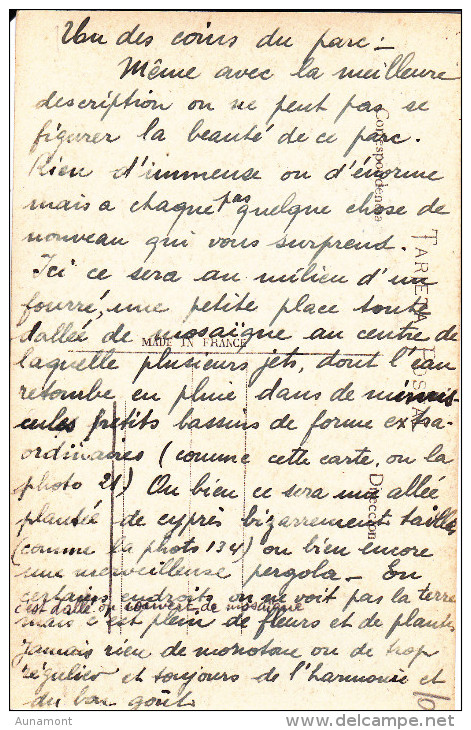 Un des coins du parc :
Même avec la meilleure
description on ne peut pas se
figurer la beauté de ce parc.
Rien d'immense ou d'énorme
mais a chaque pas quelque chose de
nouveau qui vous surprend.
Ici ce sera au milieu d'un
fourré, une petite place toute
dallée de mosaique au centre de
laquelle plusieurs jets, dont l'eau
retombe en pluie dans de minus-
cules petits bassins de forme extra-
ordinaires (comme cette carte, ou la
photo 21) Ou bien ce sera une allée
plantée de cyprès bizarrement taillés
(comme la photo 134) ou bien encore
une merveilleuse pergola - En
certains endroits on ne voit pas la terre
c'est dallé ou couvert de mosaique
mais c'est plein de fleurs et de plantes
Jamais rien de monotone ou de trop
régulier et toujours de l'harmonie et
du bon goût.
TARJETA POSTAL
Correspondencia
Direccion
MADE IN FRANCE
Aunamont
delcampe.net